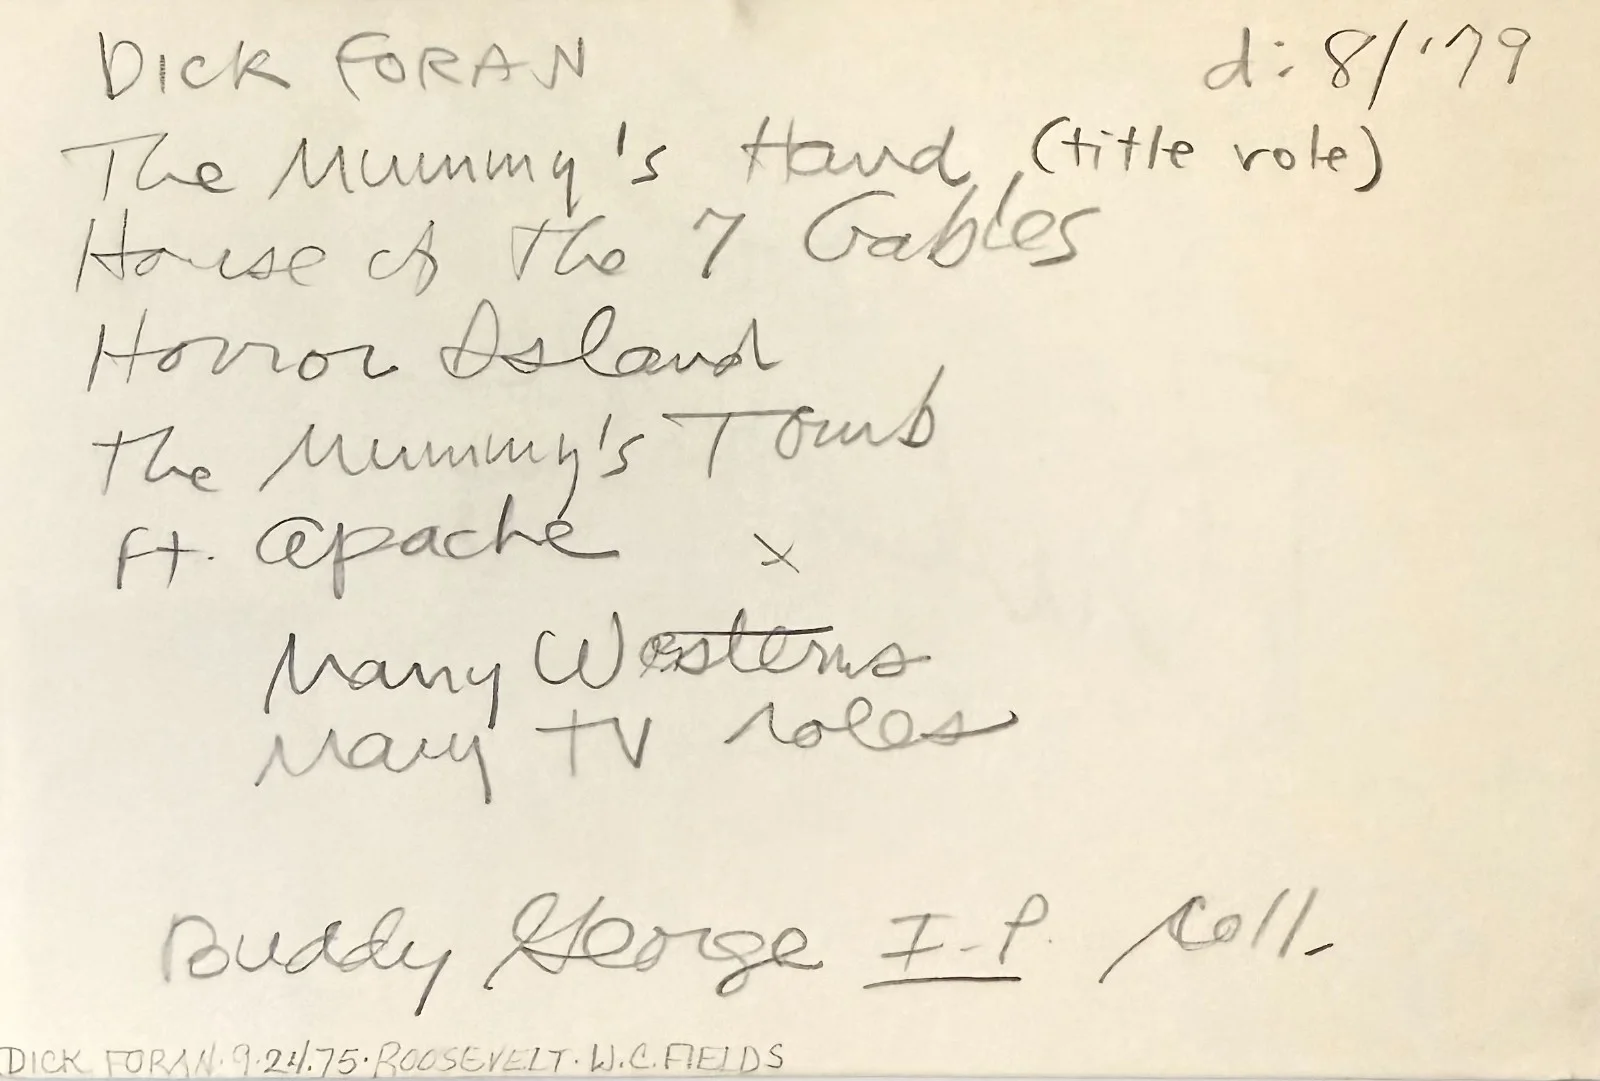 DICK FORAN d: 8/'79
The Mummy's Hand (title role)
House of the 7 Gables
Horror Island
the Mummy's Tomb
Ft. Apache x
Many Westerns
Many TV roles
Buddy George I.P. Coll.
DICK FORAN · 9·24·75 · ROOSEVELT · W.C. FIELDS